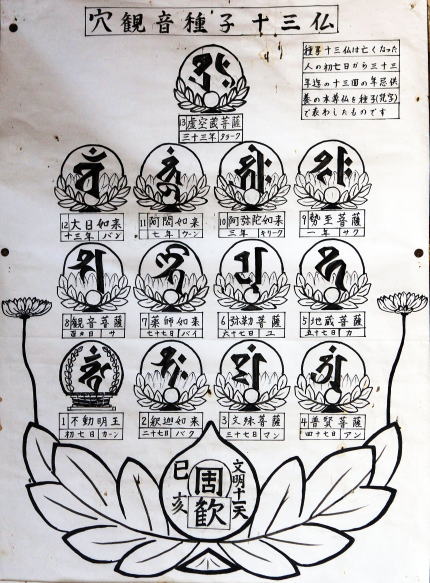 穴観音種子十三仏
種子十三仏は亡くなった
人の初七日から三十三
年迄の十三回の年忌供
養の本尊仏を種子(梵字)
で表わしたものです
13 虚空蔵菩薩
三十三年 タラーク
12 大日如来
十三年 バン
11 阿閦如来
七年 ウーン
10 阿弥陀如来
三年 キリーク
9 勢至菩薩
一年 サク
8 観音菩薩
百ヶ日 サ
7 薬師如来
七十七日 バイ
6 弥勒菩薩
六十七日 ユ
5 地蔵菩薩
五十七日 カ
1 不動明王
初七日 カーン
2 釈迦如来
二十七日 バク
3 文殊菩薩
三十七日 マン
4 普賢菩薩
四十七日 アン
文明十一天
周歓
巳亥